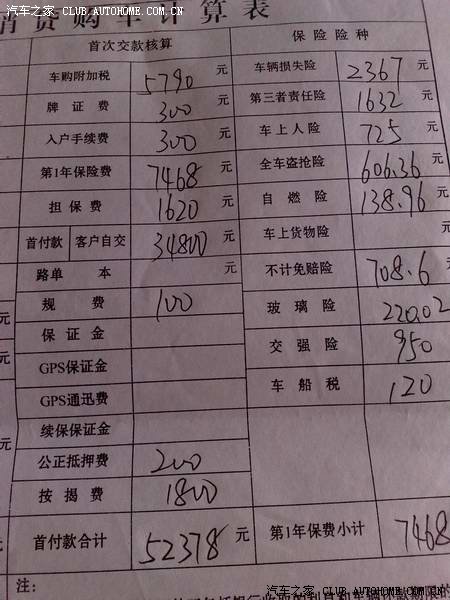 汽车之家 CLUB.AUTOHOME.COM.CN
消贷购车计算表
首次交款核算 保险险种
车购附加税 5790 元 车辆损失险 2367 元
牌证费 300 元 第三者责任险 1632 元
入户手续费 300 元 车上人险 725 元
第1年保险费 7468 元 全车盗抢险 606.36 元
担保费 1620 元 自燃险 138.96 元
首付款 客户自交 34800 元 车上货物险 元
路单本 元 不计免赔险 708.6 元
规费 100 玻璃险 220.02
元 保证金 交强险 950
GPS保证金 车船税 120
元 GPS通迅费
续保保证金
元 公正抵押费 200
按揭费 1800
首付款合计 52378 元 第1年保费小计 7468
注:
汽车之家 CLUB.AUTOHOME.COM.CN